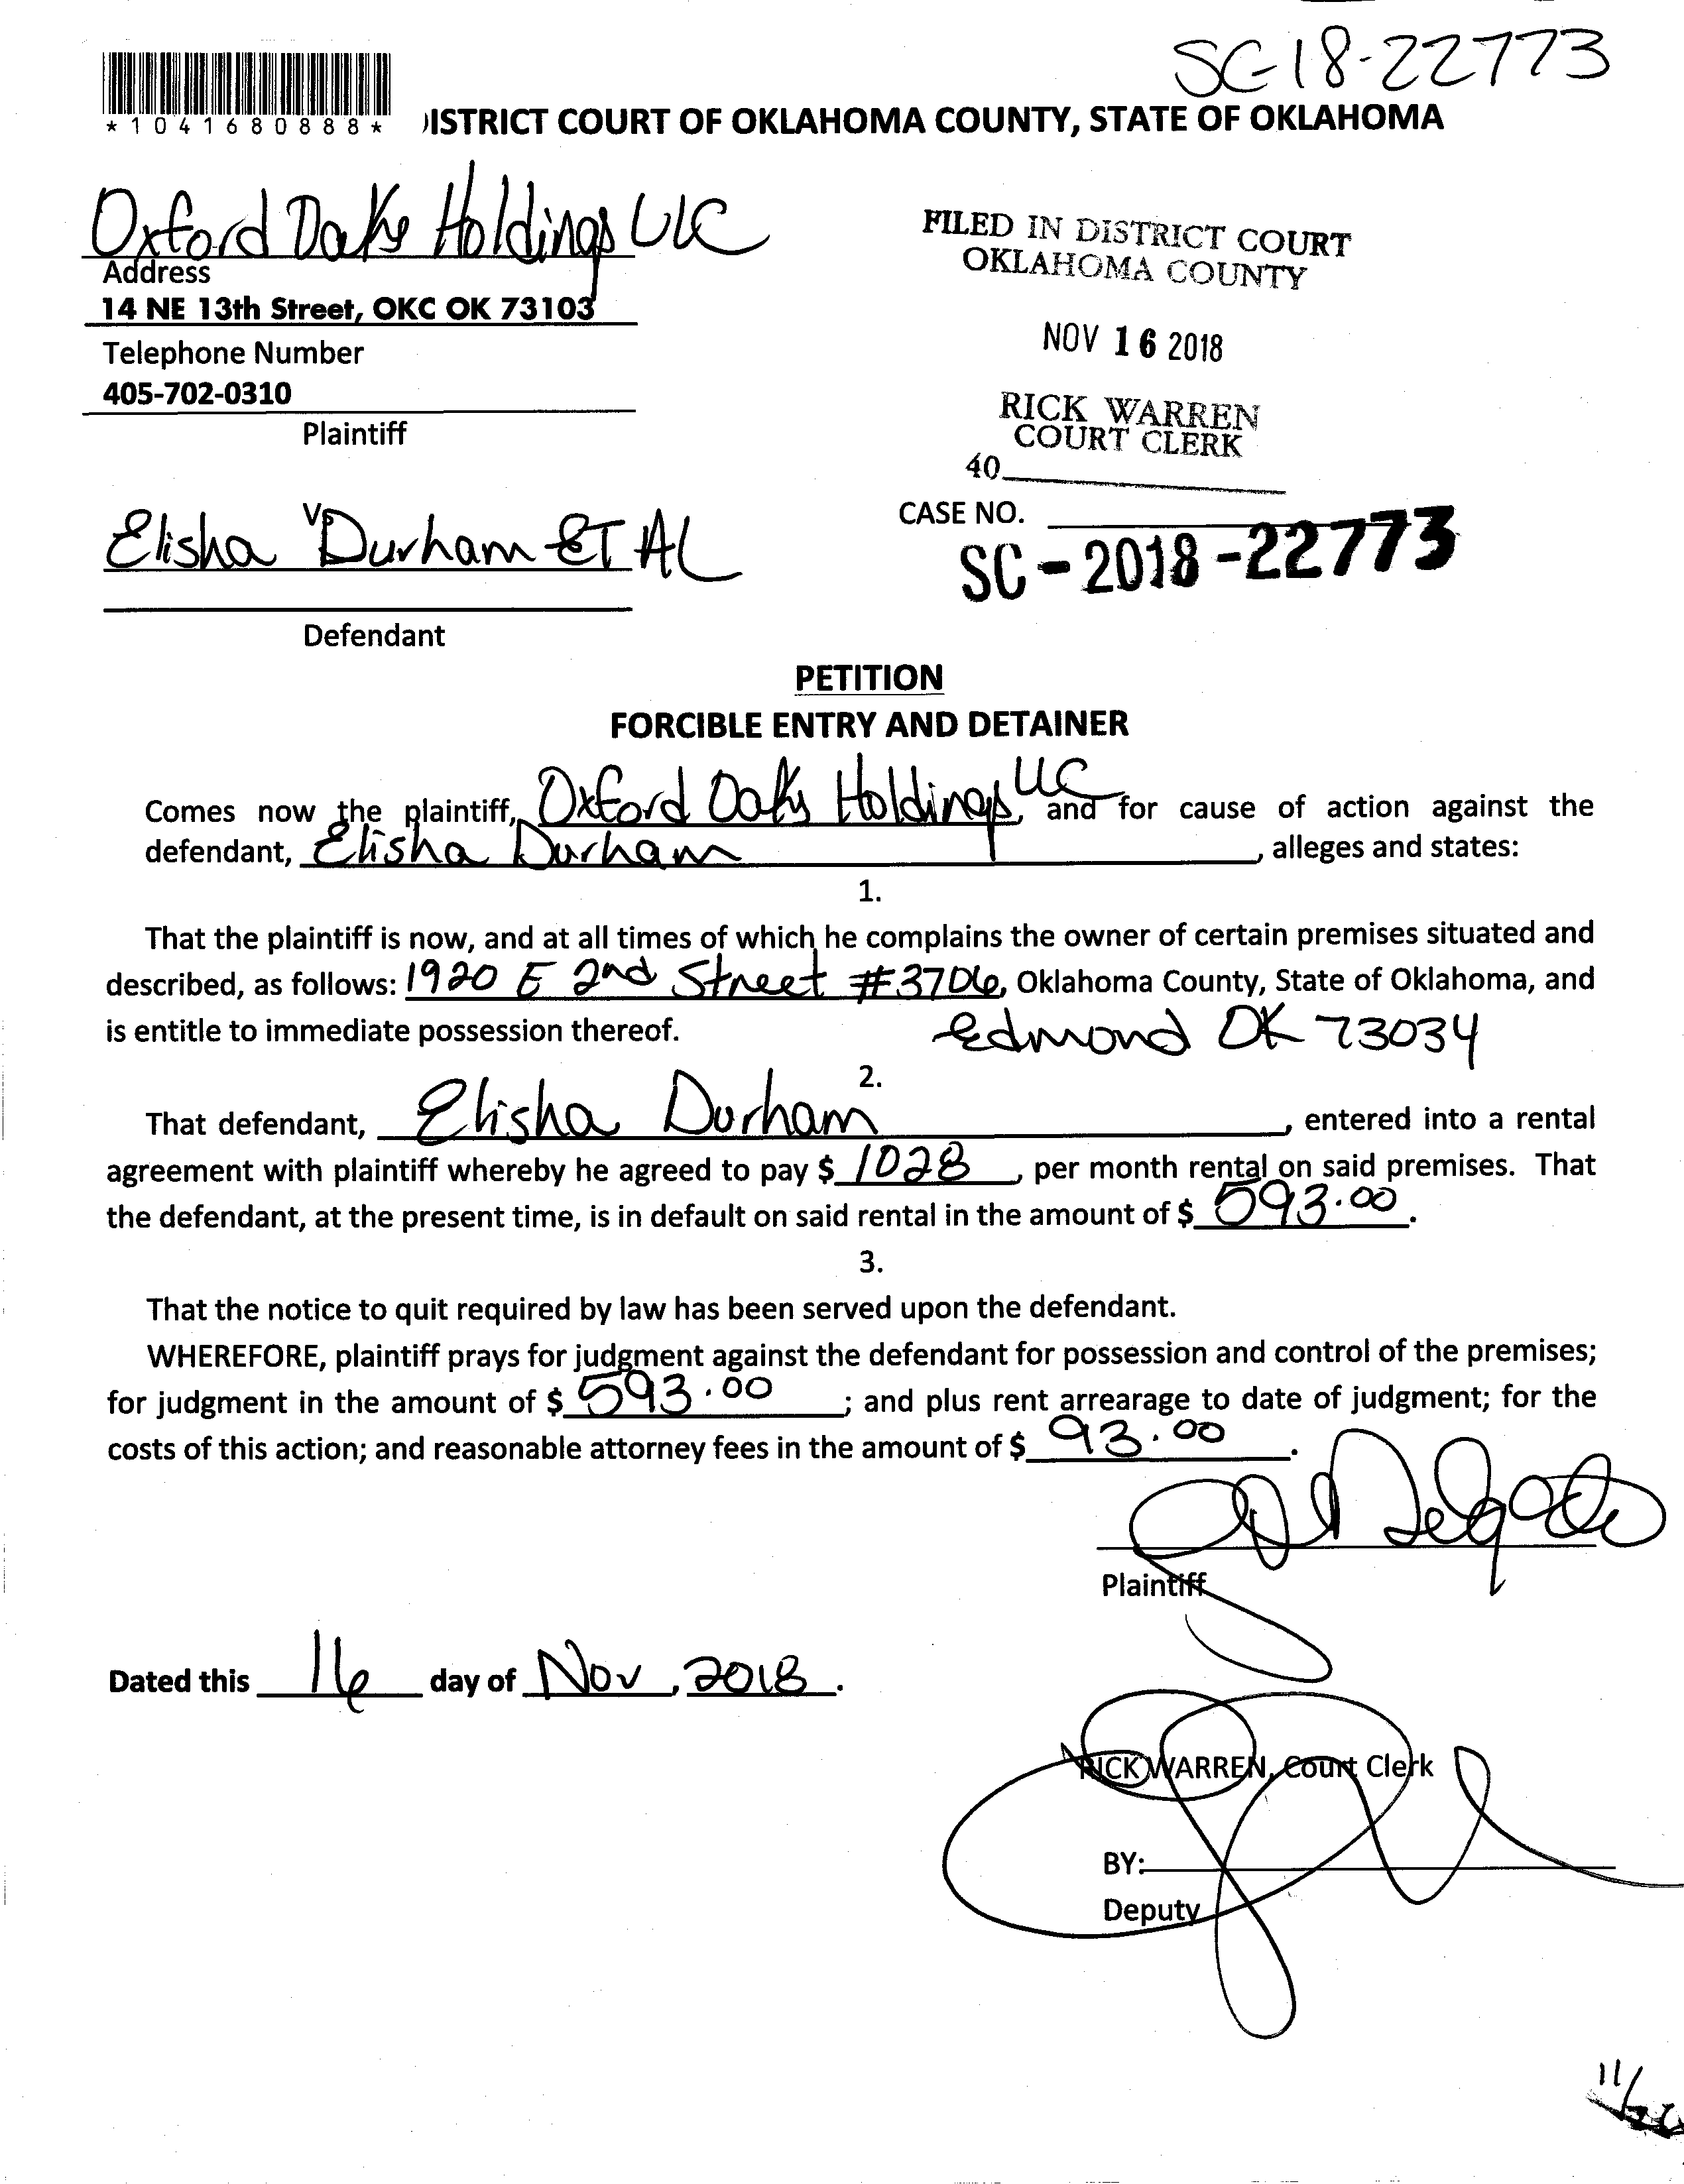 SC-18-22773
*1041680888*
DISTRICT COURT OF OKLAHOMA COUNTY, STATE OF OKLAHOMA
Oxford Oaks Holdings LLC
Address
14 NE 13th Street, OKC OK 73103
Telephone Number
405-702-0310
Plaintiff
FILED IN DISTRICT COURT
OKLAHOMA COUNTY
NOV 16 2018
RICK WARREN
COURT CLERK
40
Vs
Elisha Durham ET AL
Defendant
CASE NO.
SC-2018-22773
PETITION
FORCIBLE ENTRY AND DETAINER
Comes now the plaintiff, Oxford Oaks Holdings, LLC and for cause of action against the
defendant, Elisha Durham, alleges and states:
1.
That the plaintiff is now, and at all times of which he complains the owner of certain premises situated and
described, as follows: 1920 E 2nd Street #3706, Oklahoma County, State of Oklahoma, and
is entitle to immediate possession thereof. Edmond OK 73034
2.
That defendant, Elisha Durham, entered into a rental
agreement with plaintiff whereby he agreed to pay $ 1028, per month rental on said premises. That
the defendant, at the present time, is in default on said rental in the amount of $ 593.00.
3.
That the notice to quit required by law has been served upon the defendant.
WHEREFORE, plaintiff prays for judgment against the defendant for possession and control of the premises;
for judgment in the amount of $ 593.00; and plus rent arrearage to date of judgment; for the
costs of this action; and reasonable attorney fees in the amount of $ 93.00.
Delgado
Plaintiff
Dated this 16 day of Nov, 2018.
RICK WARREN, Court Clerk
BY:
Deputy